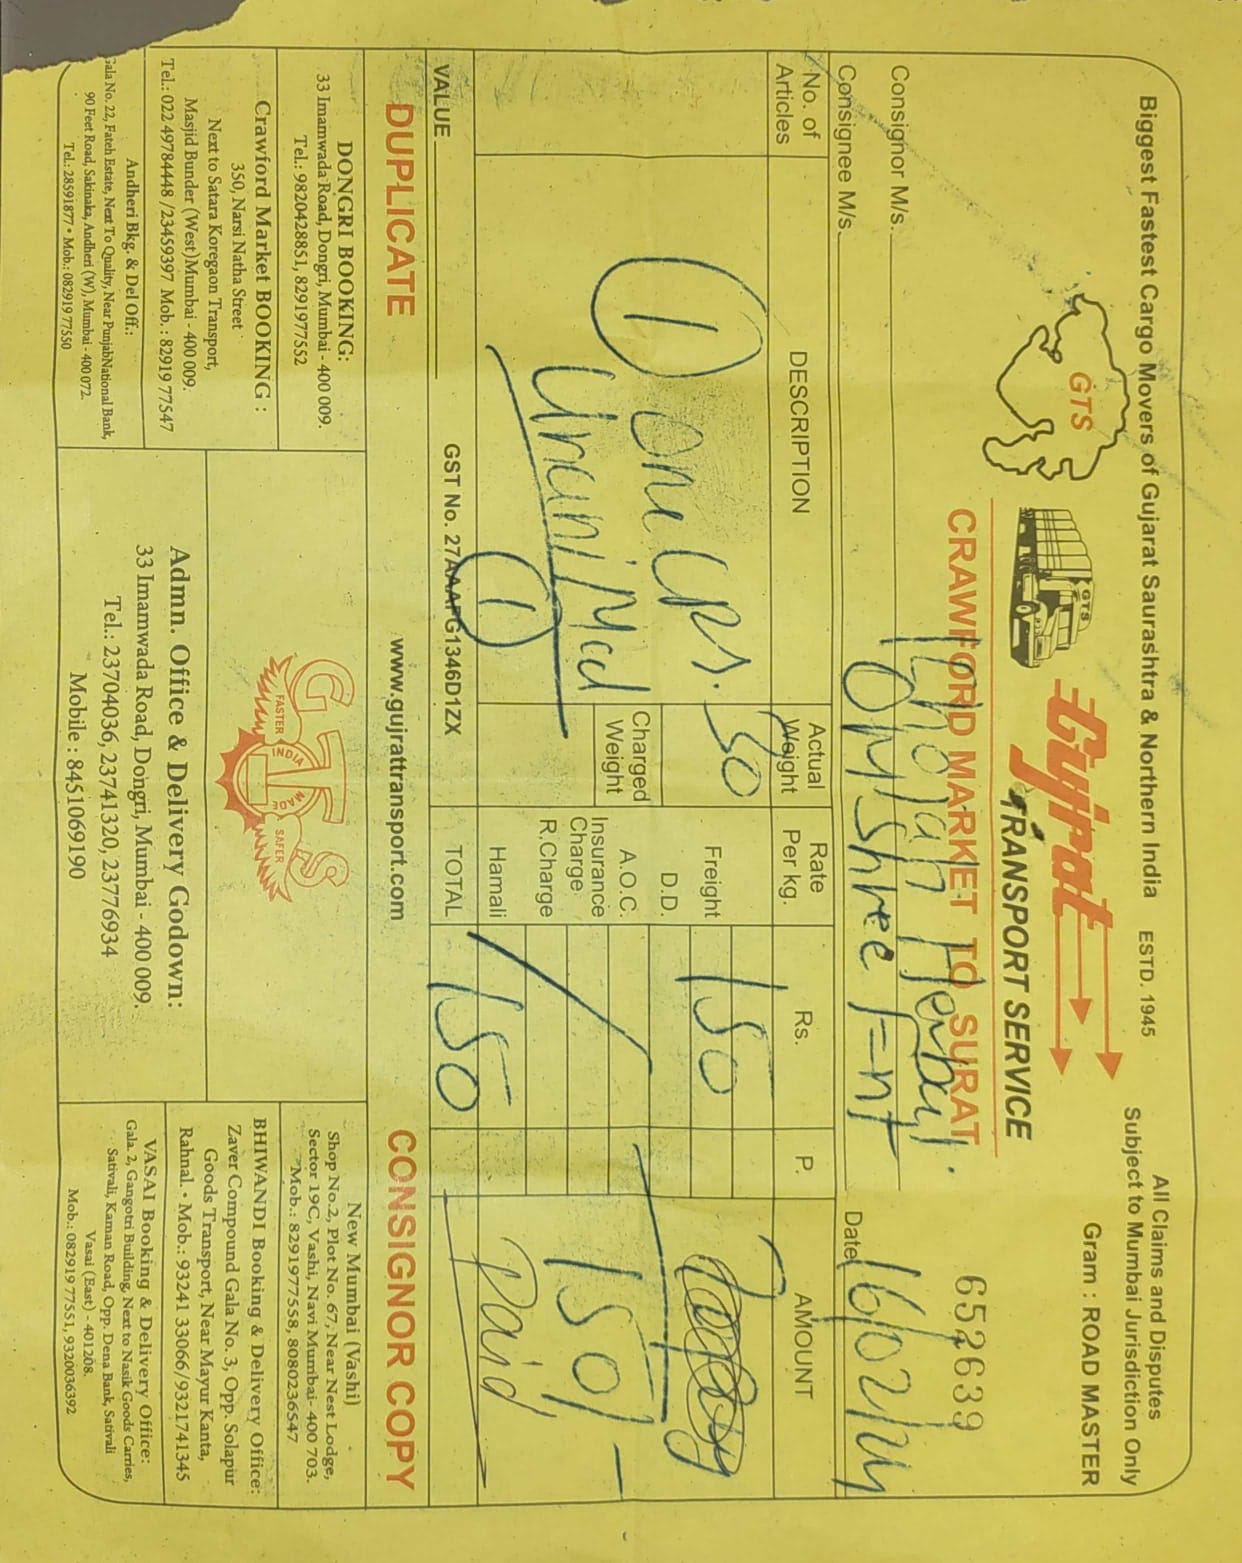 Biggest Fastest Cargo Movers of Gujarat Saurashtra & Northern India ESTD. 1945
All Claims and Disputes
Subject to Mumbai Jurisdiction Only
Gram : ROAD MASTER
GTS
GTS
Gujrat
TRANSPORT SERVICE
CRAWFORD MARKET TO SURAT
652639
Consignor M/s.
Consignee M/s. Omshree Ent
Date 16/02/24
No. of Articles
DESCRIPTION
Actual Weight
Rate Per kg.
Rs.
P.
AMOUNT
1 One CPS.
Unani Med
1
50
Charged Weight
Freight 150
D.D.
A.O.C.
Insurance Charge
R.Charge
Hamali
150/-
paid
VALUE
GST No. 27AAAFG1346D1ZX
TOTAL 150
DUPLICATE
www.gujrattransport.com
CONSIGNOR COPY
DONGRI BOOKING:
33 Imamwada Road, Dongri, Mumbai - 400 009.
Tel.: 9820428851, 8291977552
Crawford Market BOOKING :
350, Narsi Natha Street
Next to Satara Koregaon Transport,
Masjid Bunder (West)Mumbai - 400 009.
Tel.: 022 49784448 /23459397 Mob. : 82919 77547
Andheri Bkg. & Del Off.:
Gala No. 22, Fateh Estate, Next To Quality, Near PunjabNational Bank,
90 Feet Road, Sakinaka, Andheri (W), Mumbai - 400 072.
Tel.: 28591877 • Mob.: 082919 77550
GTS
FASTER
INDIA
MADE
SAFER
Admn. Office & Delivery Godown:
33 Imamwada Road, Dongri, Mumbai - 400 009.
Tel.: 23704036, 23741320, 23776934
Mobile : 8451069190
New Mumbai (Vashi)
Shop No.2, Plot No. 67, Near Nest Lodge,
Sector 19C, Vashi, Navi Mumbai- 400 703.
Mob.: 8291977558, 8080236547
BHIWANDI Booking & Delivery Office:
Zaver Compound Gala No. 3, Opp. Solapur
Goods Transport, Near Mayur Kanta,
Rahnal. • Mob.: 93241 33066/9321741345
VASAI Booking & Delivery Office:
Gala. 2, Gangotri Building, Next to Nasik Goods Carries,
Sativali, Kaman Road, Opp. Dena Bank, Sativali
Vasai (East) - 401208.
Mob.: 082919 77551, 9320036392